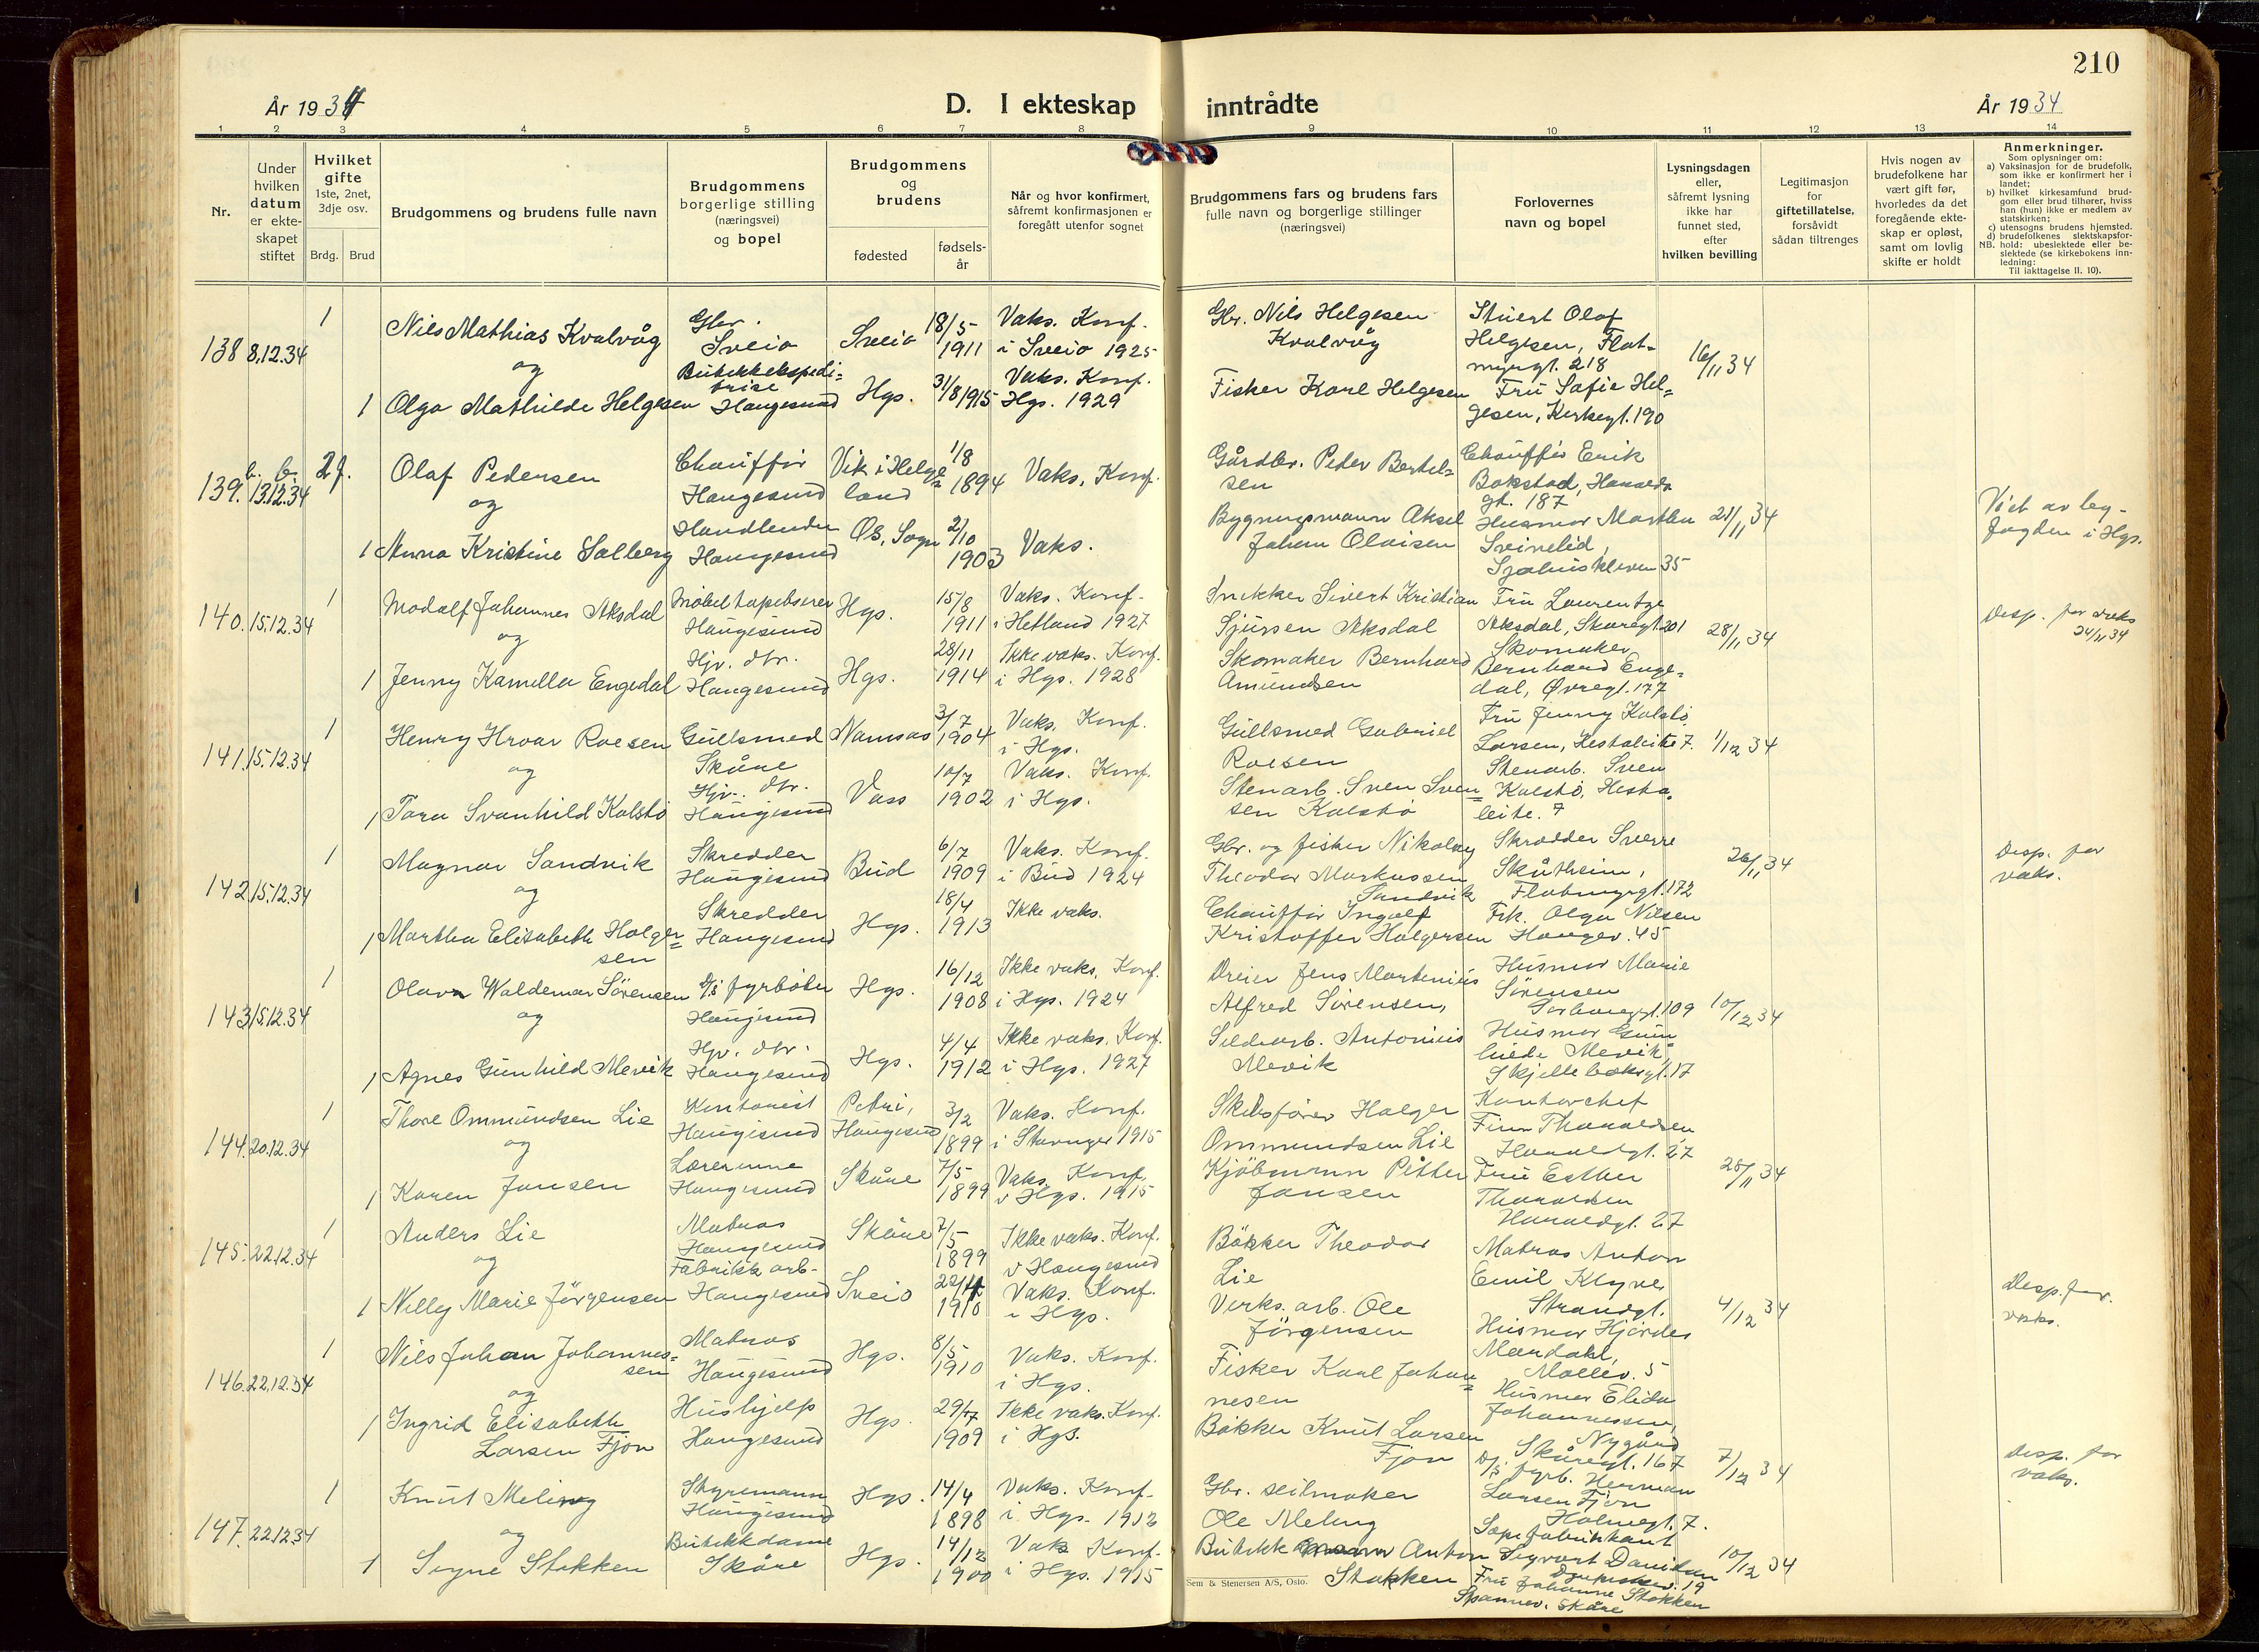 210
År 1934
D. I ekteskap
inntrådte
År 1934
1 2 3 4 5 6 7 8 9 10 11 12 13 14
Nr.
Under
hvilken
datum
er ekte-
skapet
stiftet
Hvilket
gifte
1ste, 2net,
3dje osv.
Brdg. Brud
Brudgommens og brudens fulle navn
Brudgommens
borgerlige stilling
(næringsvei)
og bopel
Brudgommens
og
brudens
fødested
fødsels-
år
Når og hvor konfirmert,
såfremt konfirmasjonen er
foregått utenfor sognet
Brudgommens fars og brudens fars
fulle navn og borgerlige stillinger
(næringsvei)
Forlovernes
navn og bopel
Lysningsdagen
eller,
såfremt lysning
ikke har
funnet sted,
efter
hvilken bevilling
Legitimasjon
for
giftetillatelse,
forsåvidt
sådan tiltrenges
Hvis nogen av
brudefolkene har
vært gift før,
hvorledes da det
foregående ekte-
skap er opløst,
samt om lovlig
skifte er holdt
Anmerkninger.
Som oplysninger om:
a) Vaksinasjon for de brudefolk,
som ikke er konfirmert her i
landet;
b) hvilket kirkesamfund brud-
gom eller brud tilhører, hviss
han (hun) ikke er medlem av
statskirken;
c) utensogns brudens hjemsted.
d) brudefolkenes slektskapsfor-
NB. hold: ubeslektede eller be-
slektede (se kirkebokens inn-
ledning:
Til iakttagelse II. 10).
138 8.12.34
1 Nils Mathias Kvalvåg
og
1 Olga Mathilde Helgesen
Gbr.
Sveio
Butikkekspedi=
trise
Haugesund
Sveio 18/5 1911
Hgs. 31/8 1915
Vaks. Konf.
i Sveio 1925
Vaks. Konf.
Hgs. 1929
Gbr. Nils Helgesen
Kvalvåg
Fisker Karl Helgesen
Stuert Olaf
Helgesen, Flot-
myrgt. 218
Fru Sofie Hel=
gesen, Kirkegt. 190
16/11 34
139. b. b. 13.12.34
2 f. Olaf Pedersen
og
1 Anna Kristine Solberg
Chauffør
Haugesund
Handlende
Haugesund
Vik i Helge=
land 1/8 1894
Os, Sogn 2/10 1903
Vaks. Konf.
Vaks.
Gårdbr. Peder Bertel=
sen
Bygningsmann Aksel
Johan Olaisen
Chauffør Erik
Bakstad, Haralds
gt. 187
Husmor Martha
Sveinelid,
35
21/11 34
Viet av by-
fogden i Hgs.
140. 15.12.34
1 Modalf Johannes Aksdal
og
1 Jenny Kamilla Engedal
Møbeltapetserer
Haugesund
Hjv. dtr.
Haugesund
Hgs. 15/8 1911
Hgs. 28/11 1914
Vaks. Konf.
i Hetland 1927
Ikke vaks. Konf.
i Hgs. 1928
Snekker Sivert Kristian
Sjursen Aksdal
Skomaker Bernhard
Amundsen
Fru Laurentze
Aksdal, Skaregt. 201
Skomaker
Bernhard Enge=
dal, Øvregt. 177
28/11 34
Desp. for vaks
24/11 34
141. 15.12.34
1 Henry Hroar Roesen
og
1 Tora Svanhild Kolstø
Gullsmed
Skåne
Hjv. dtr.
Haugesund
Namsos 3/7 1904
Voss 10/7 1902
Vaks. Konf.
i Hgs.
Vaks. Konf.
i Hgs.
Gullsmed Gabriel
Roesen
Stenarb. Sven Sven=
sen Kolstø
Fru Jenny Kolstø
Larsen, Hestaleite 7.
Stenarb. Sven
Kolstø, Hesta=
leite. 7
1/12 34
142. 15.12.34
1 Magnar Sandvik
og
1 Martha Elisabeth Holger=
sen
Skredder
Haugesund
Skredder
Haugesund
Bud 6/7 1909
Hgs. 18/4 1913
Vaks. Konf.
i Bud 1924
Ikke vaks.
Gbr. og fisker Nikolay
Theodor Markussen
Sandvik
Chauffør Ingolf
Kristoffer Holgersen
Skredder Sverre
Skutheim,
Flotmyrgt. 172
Frk. Olga Nilsen
Haugev. 45
26/11 34
Desp. for
vaks.
143. 15.12.34
1 Olav Waldemar Sörensen
og
1 Agnes Gunhild Mevik
D/s fyrbøter
Haugesund
Hjv. dtr.
Haugesund
Hgs. 16/12 1908
Hgs. 4/4 1912
Ikke vaks. Konf.
i Hgs. 1924
Ikke vaks. Konf.
i Hgs. 1927
Dreier Jens Martenius
Alfred Sörensen,
Sildearb. Antonius
Mevik
Husmor Marie
Sörensen
109
Husmor Gun
hilde Mevik,
17
10/12 34
144. 20.12.34
1 Thore Ommundsen Lie
og
1 Karen Jansen
Kontorist
Haugesund
Lærerinne
Haugesund
Petri,
Haugesund 3/2 1899
Skåre 7/5 1899
Vaks. Konf.
i Stavanger 1915
Vaks. Konf.
v Hgs. 1915
Skibsfører Holger
Ommundsen Lie
Kjöbmann Pitter
Jansen
Kontorchef
Finn Thoralsen,
Haraldgt. 27
Fru Esther
Thoralsen
Haraldgt. 27
28/11 34
145. 22.12.34
1 Anders Lie
og
1 Nelly Marie Jörgensen
Matros
Haugesund
Fabrikkarb-
Haugesund
Skåre 7/5 1899
Sveio 1910
Ikke vaks. Konf.
v Haugesund
Vaks. Konf.
i Hgs.
Bökker Theodor
Lie
Verks. arb. Ole
Jörgensen
Matros Anton
Emil Klyve,
Strandgt.
Husmor Hjördis
Mandahl,
Møllev. 5
4/12 34
Desp. for.
vaks.
146. 22.12.34
1 Nils Johan Johannes=
sen
og
1 Ingrid Elisabeth
Larsen Fjon
Matros
Haugesund
Hushjelp
Haugesund
Hgs. 8/5 1910
Hgs. 29/7 1909
Vaks. Konf.
i Hgs.
Ikke vaks. Konf.
i Hgs.
Fisker Karl Johan=
nesen
Bökker Knut Larsen
Fjon
Husmor Elida
Johannessen,
Nygård
Skåregt. 167
D/s fyrb. Herman
Larsen Fjon
Holmegt. 7.
7/12 34
Desp. for
vaks.
147. 22.12.34
1 Knut Meling
og
1 Signe Stokken
Styrmann
Haugesund
Butikkdame
Skåre
Hgs. 14/4 1898
Hgs. 14/12 1900
Vaks. Konf.
i Hgs. 1912
Vaks Konf.
i Hgs. 1915
Gbr. seilmaker
Ole Meling
Butikk Anton
Stokken
Sæpefabrikant
Sigvart Danielsen
19
Fru Johanne Stokken
Spannav. Skåre
10/12 34
Sem & Stenersen A/S, Oslo.